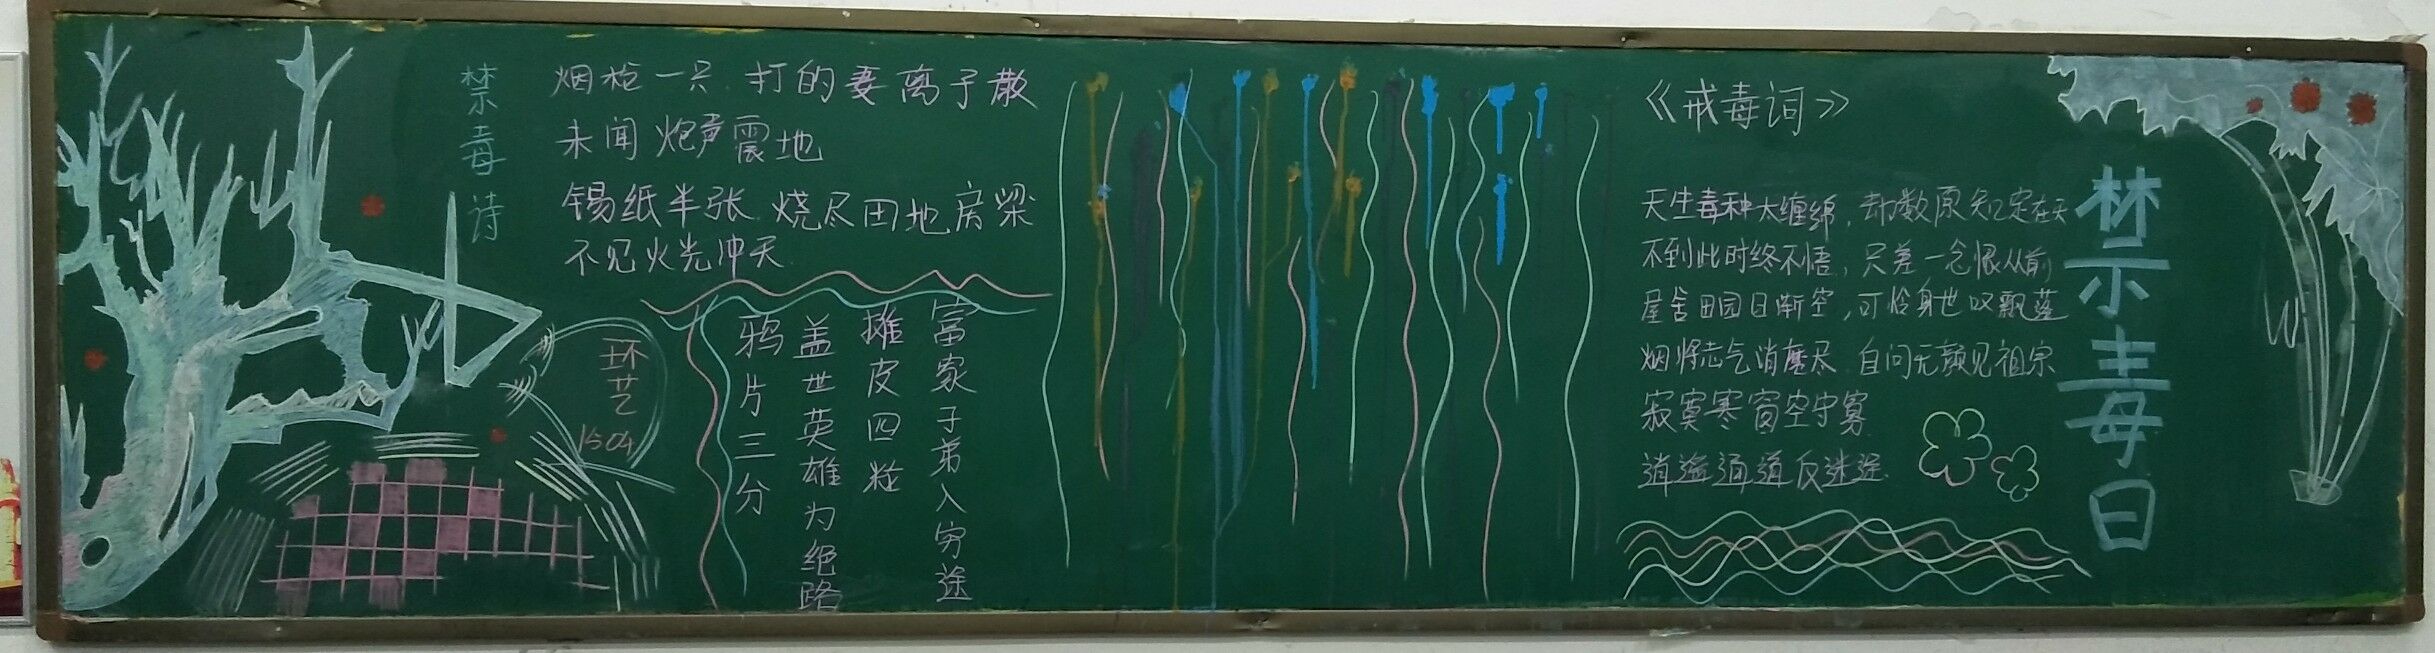 禁毒诗
烟枪一只 打的妻离子散
未闻炮声震地
锡纸半张 烧尽田地房梁
不见火光冲天
环艺
1504
鸦片三分
盖世英雄为绝路
摊皮四粒
富家子弟入穷途
《戒毒词》
天生毒种太缠绵，劫数原知定在天
不到此时终不悟，只差一念恨从前
屋舍田园日渐空，可怜身世叹飘蓬
烟将志气消磨尽 自问无颜见祖宗
寂寞寒窗空守寡
逍遥通道反迷途
禁毒日